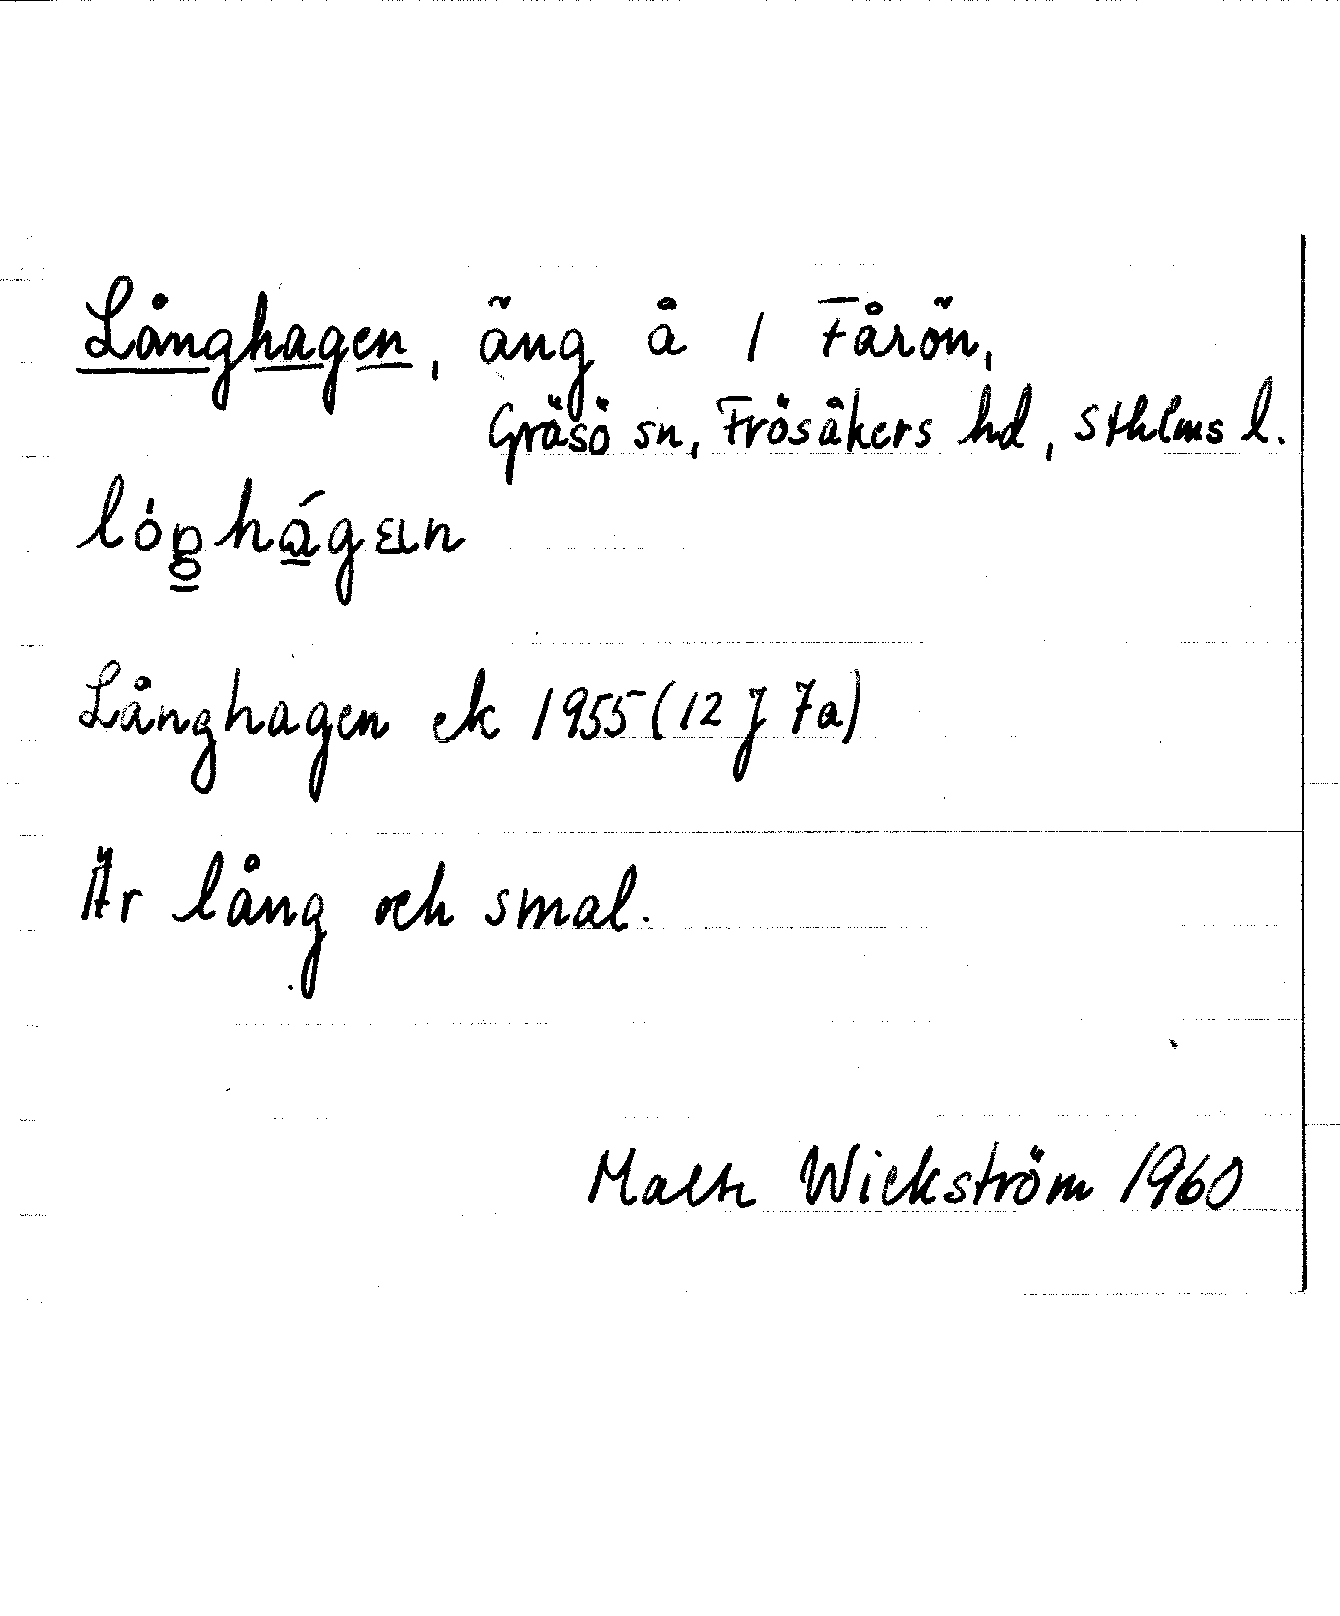 Långhagen, äng å 1 Fårön,
Gräsö sn, Frösåkers hd, Sthlms l.
Långhagen ek 1955 (12 J 7a)
Är lång och smal.
Malte Wickström 1960